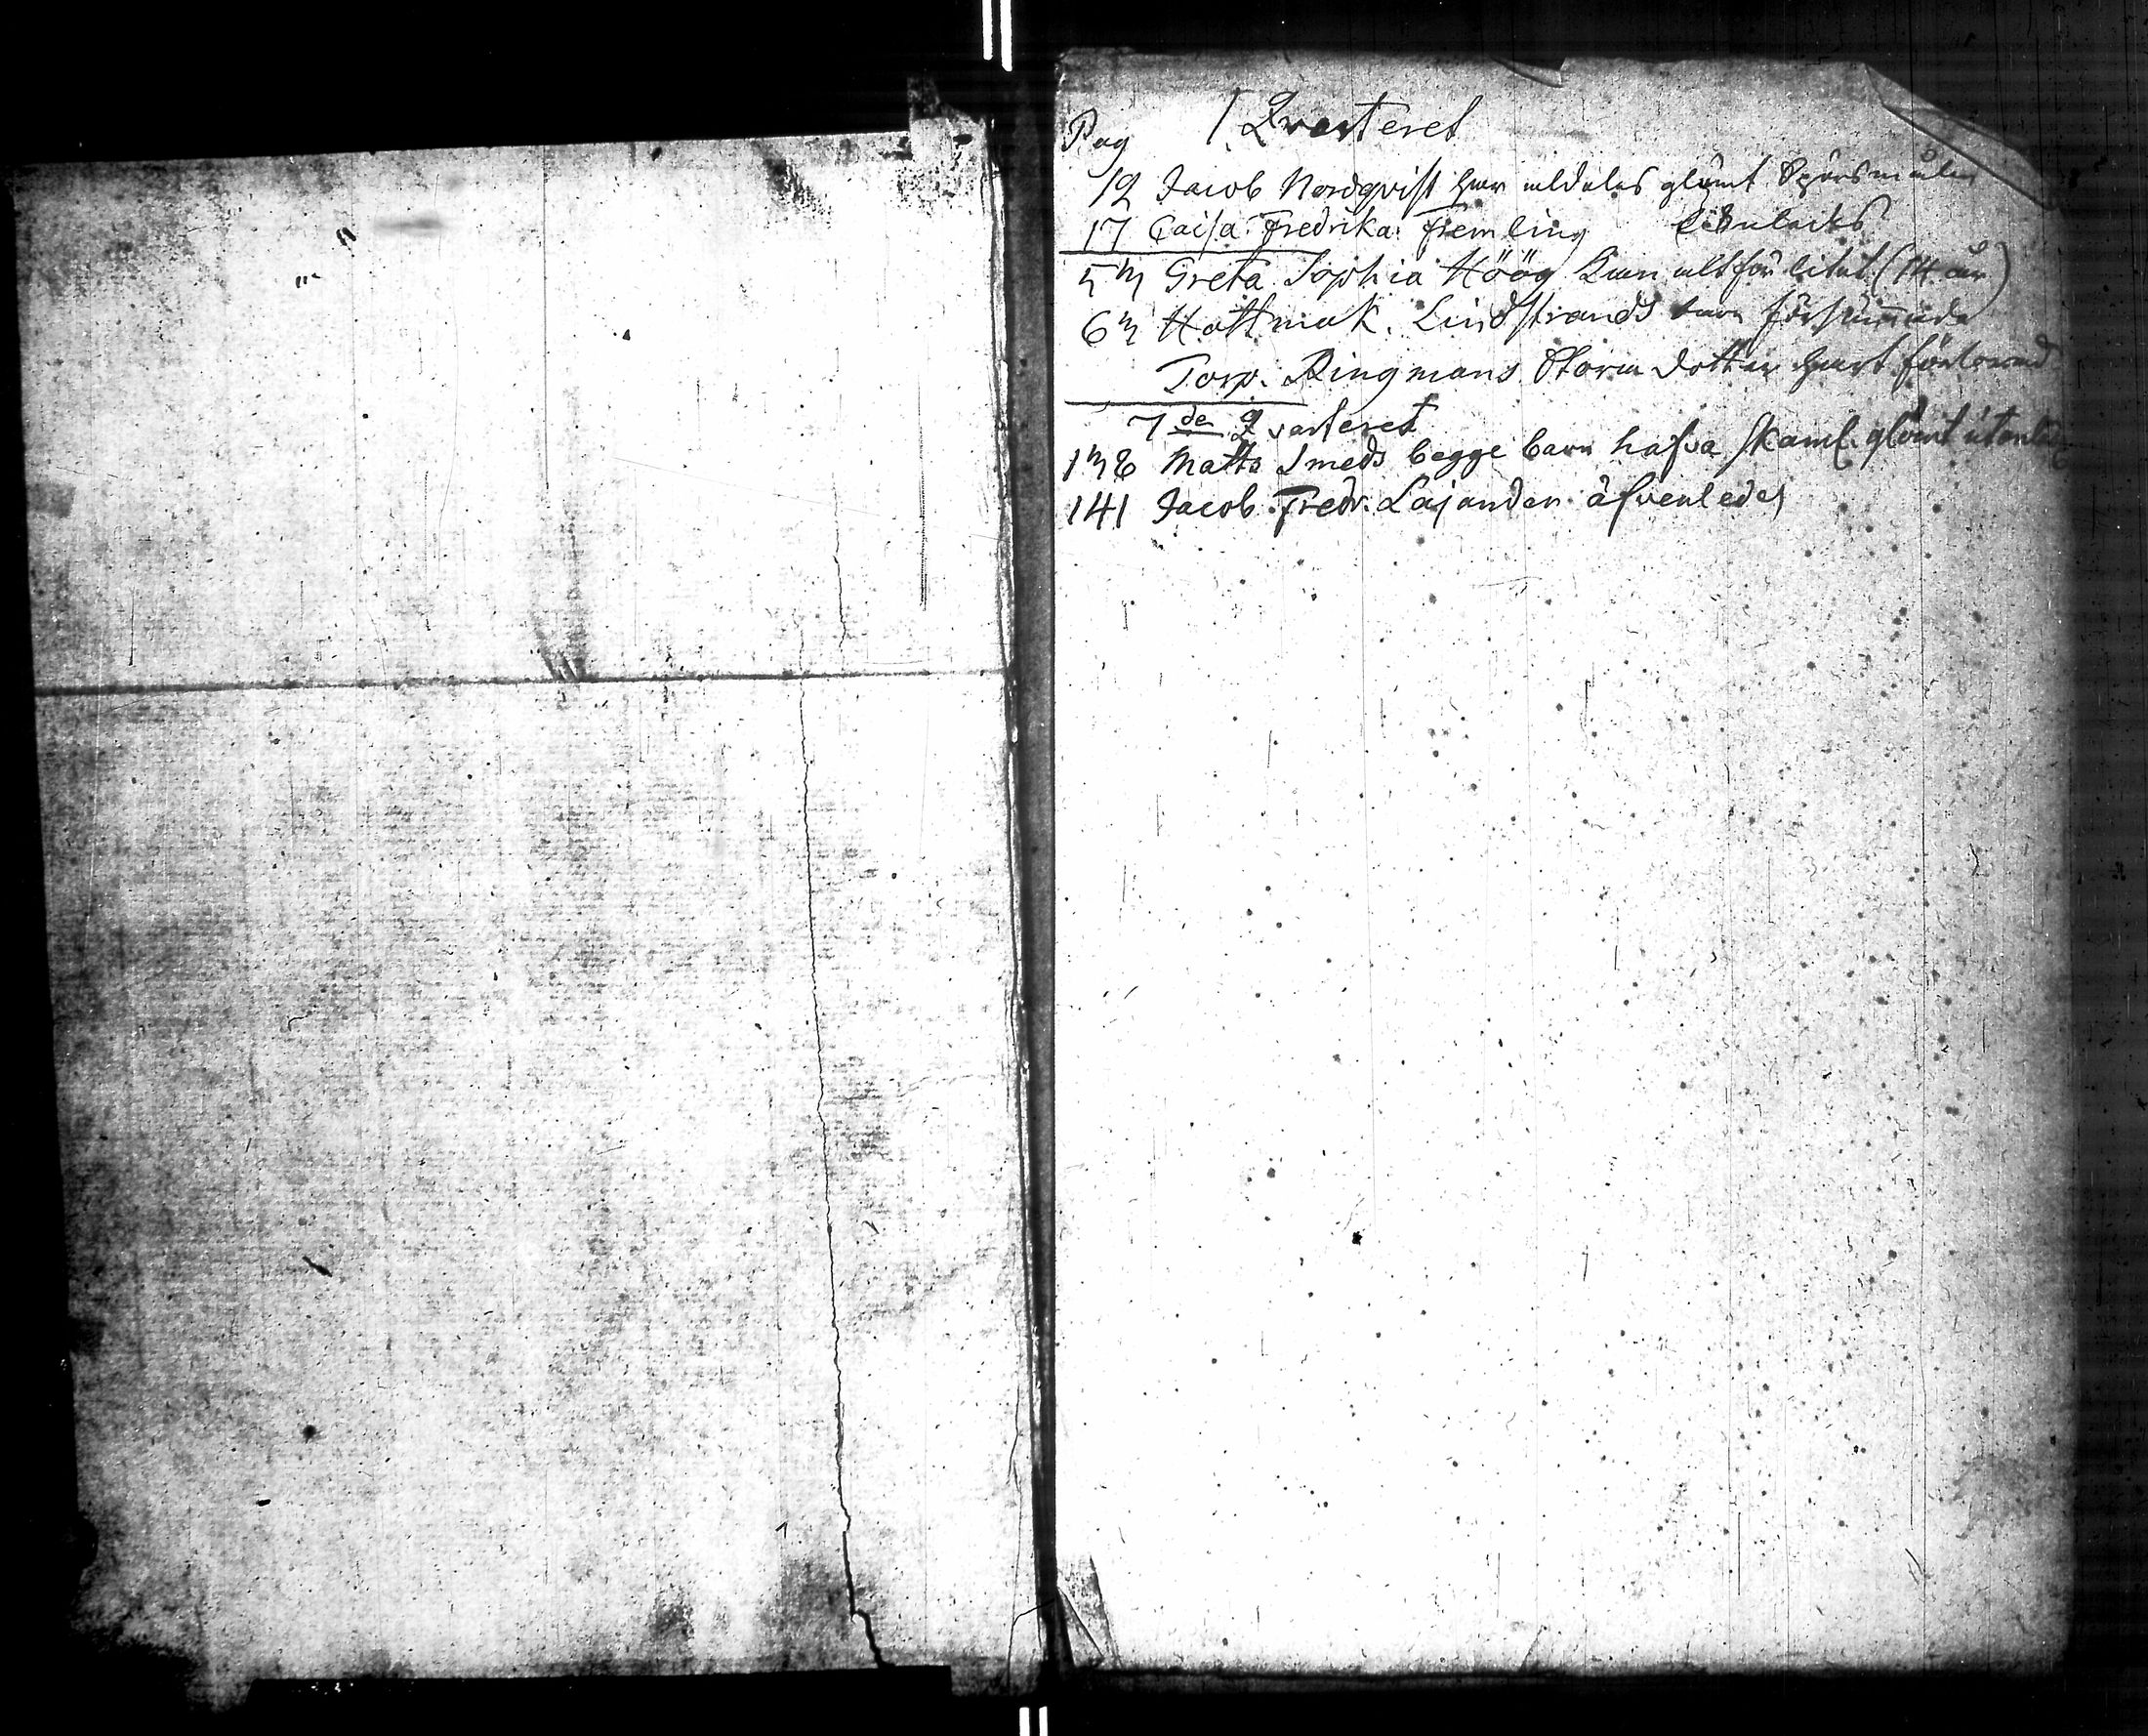 Pag I Qvarteret
12 Jacob Nordqvist har aldeles glömt Spörsmålen
17 Caisa Fredrika Fremling likaledes
53 Greta Sophia Höög kan altför litet (14 år)
63 Hattmak. Lindstrands barn försummade
Torp. Ringmans Stora dotter snart förlorad
7de Qvarteret
138 Matts Smeds begge barn hafva skaml. glömt utanläs
141 Jacob Fredr. Lajander äfvenledes